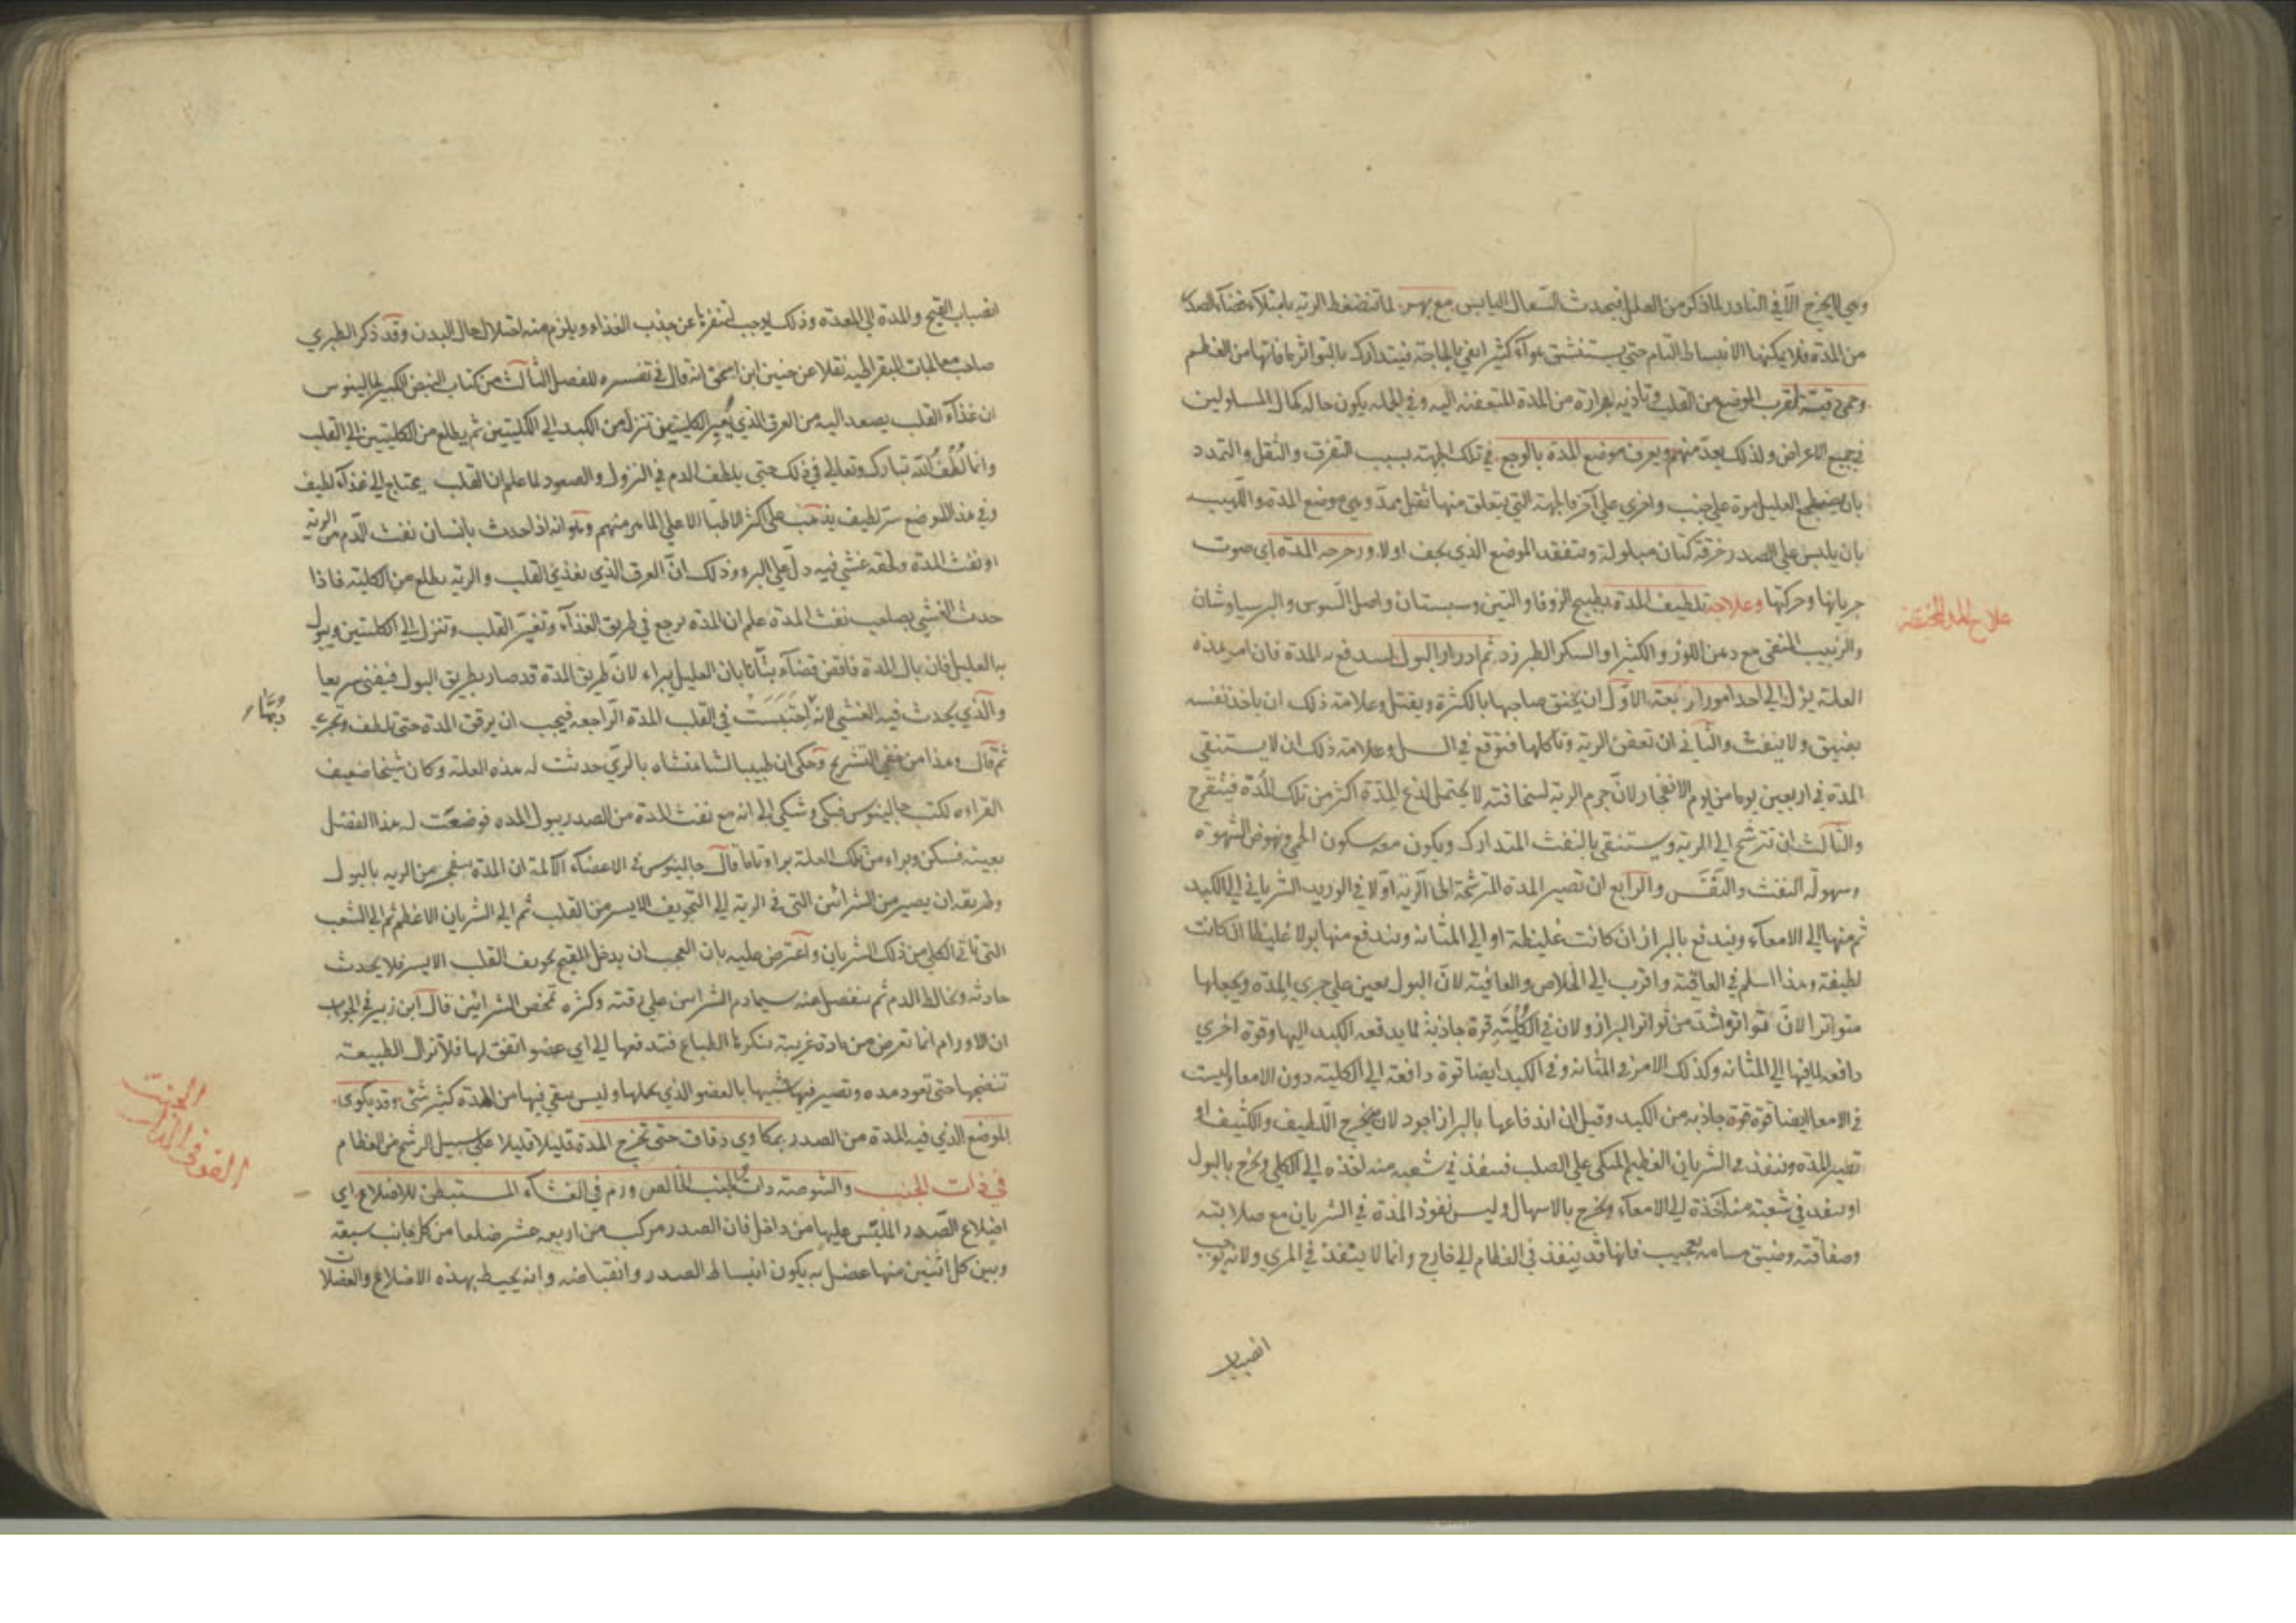 وهي لا يخرج الا في النادر لما ذكر من العلل فيحدث السعال اليابس مع بهر لما تنضغط الرية بامتلاء فضاء الصدر
من المدة فلا يمكنها الانبساط التام حتى يستنشق هواء كثيرا يفي بالحاجة فيتدارك بالتواتر ما فاتها من العظم
وحمى دقية لقرب الموضع من القلب وتاذيه بحرارة من المدة المتعفنة اليه وفي الجملة يكون حاله كحال المسلولين
في جميع الاعراض ولذلك يعد منهم ويعرف موضع المدة بالوجع في تلك الجهة بسبب التفرق والثقل والتمدد
بان يضطجع العليل مرة على جنب واخرى على آخر فالجهة التي يتعلق منها ثقل ممد وهي موضع المدة واللهيب
بان يلبس على الصدر خرقة كتان مبلولة ويتفقد الموضع الذي يجف اولا ورجرجة المدة اي صوت
جريانها وحركتها وعلاجه تلطيف المدة بطبيخ الزوفا والتين وسبستان واصل السوس والبرسياوشان
علاج المدة المحتقنة
والزبيب المنقى مع دهن اللوز والكثيرا والسكر الطبرزد ثم ادرار البول لتندفع به المدة فان امر هذه
العلة يؤل الى احد امور اربعة الاول ان يخنق صاحبها بالكثرة ويقتل وعلامة ذلك ان ياخذ نفسه
يضيق ولا ينفث والثاني ان تعفن الرية وتاكلها فتوقع في السل وعلامة ذلك ان لا يستنقي
المدة في اربعين يوما من يوم الانفجار لان جرم الرية لسخافته لا يحتمل لذع المدة اكثر من تلك المدة فيتقرح
والثالث ان تترشح الى الرية ويستنقي بالنفث المتدارك ويكون معه سكون الحمى ونهوض الشهوة
وسهولة النفث والتنفس والرابع ان تصير المدة المترشحة الى الرية اولا في الوريد الشرياني الى الكبد
ثم منها الى الامعاء ويندفع بالبراز ان كانت غليظة او الى المثانة ويندفع منها بولا غليظا ان كانت
لطيفة وهذا اسلم في العاقبة واقرب الى الخلاص والعافية لان البول يعين على جري المدة ويجعلها
متواترا لان تواتره اشد من تواتر البراز ولان في الكلية قوة جاذبة لما يدفعه الكبد اليها وقوة اخرى
دافعة لما فيها الى المثانة وكذلك الامر في المثانة وفي الكبد ايضا قوة دافعة الى الكلية دون الامعا وليست
في الامعا ايضا قوة قوة جاذبة من الكبد وقيل ان اندفاعها بالبراز اجود لانه يخرج اللطيف والكثيف او
تصير المدة وتنفذ في الشريان العظيم المتكي على الصلب فتنفذ في شعبة منه اخذه الى الكلى ويخرج بالبول
او تنفذ في شعبة منه آخذة الى الامعاء ويخرج بالاسهال وليس نفوذ المدة في الشريان مع صلابته
وصفاقته وضيق مسامه بعجيب فانها قد ينفذ في العظام الى خارج وانما لا ينفذ في المري ولانه يوجب
انصباب
انصباب القيح والمدة الى المعدة وذلك يوجب تنفرها عن جذب الغذاء ويلزم منه اختلال حال البدن وقد ذكر الطبري
صاحب معالجات البقراطية نقلا عن حنين ابن اسحق انه قال في تفسيره للفصل الثالث من كتاب النبض الكبير لجالينوس
ان غذاء القلب يصعد اليه من العرق الذي يغير الكليتين تنزل من الكبد الى الكليتين ثم يطلع من الكليتين الى القلب
وانما لطف الله تبارك وتعالى في ذلك حتى يلطف الدم في النزول والصعود لما علم ان القلب يحتاج الى غذاء لطيف
وفي هذا الموضع سر لطيف يذهب على اكثر الاطبا الا على الماهر منهم وهو انه اذا حدث بانسان نفث الدم من الرية
او نفث المدة ولحقه غشي فيه دل على البرء وذلك ان العرق الذي يغذي القلب والرية يطلع من الكلية فاذا
حدث الغشي بصاحب نفث المدة علم ان المدة ترجع في طريق الغذاء وتغير القلب وتنزل الى الكليتين ويبول
به العليل فان بال المدة فاقض قضاء بتاتا بان العليل يبراء لان طريق المدة قد صار بطريق البول فيفنى سريعا
والذي يحدث فيه الغشي لانه احتبست في القلب المدة الراجعة فيجب ان يرقق المدة حتى تلطف وتجري
ثم قال وهذا من خفي التشريح وحكى ان طبيبا لشاهنشاه بالري حدثت له هذه العلة وكان شيخا ضعيف
القراءة لكتب جالينوس فبكى وشكى الى انه مع نفث المدة من الصدر يبول المدة فوضعت له هذا الفصل
بعينه فسكن وبراء من تلك العلة براء تاما قال جالينوس في الاعضاء الآلمة ان المدة ينفجر من الرية بالبول
وطريقه ان يصير من الشرائين التي في الرية الى التجويف الايسر من القلب ثم الى الشريان الاعظم ثم الى الشعب
التي تاتي الكلى من ذلك الشريان واعترض عليه بان العجب ان يدخل القيح تجويف القلب الايسر فلا يحدث
حادثة ويخالط الدم ثم ينفصل عنه سيما دم الشرائين على رقته وكثرة تمخض الشرائين قال ابن زهير في الجواب
ان الاورام انما تعرض من مادة غريبة تنكرها الطباع فتدفعها الى اي عضو اتفق لها فلا تزال الطبيعة
تنضجها حتى تعود مدة وتصير فيها شبيها بالعضو الذي يحلها وليس يبقى فيها من المدة كثير شئ وقد يكوى
الموضع الذي فيه المدة من الصدر بمكاوي دقاق حتى تخرج المدة قليلا قليلا على سبيل الرشح من العظام
في ذات الجنب والشوصة ذات الجنب الخالص ورم في الغشاء المستبطن للاضلاع اي
اضلاع الصدر الملبس عليها من داخل فان الصدر مركب من اربعة عشر ضلعا من كل جانب سبعة
وبين كل اثنين منها عضل به يكون انبساط الصدر وانقباضه وانه يحيط بهذه الاضلاع والعضلات